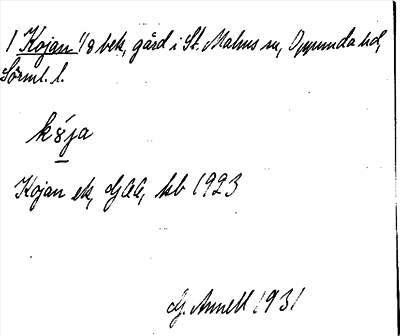 1 Kojan 1/8 bek, gård i St. Malms sn, Oppunda hd,
Sörml. l.
kója
Kojan ek, GAA, kb 1923
G. Annell 1931